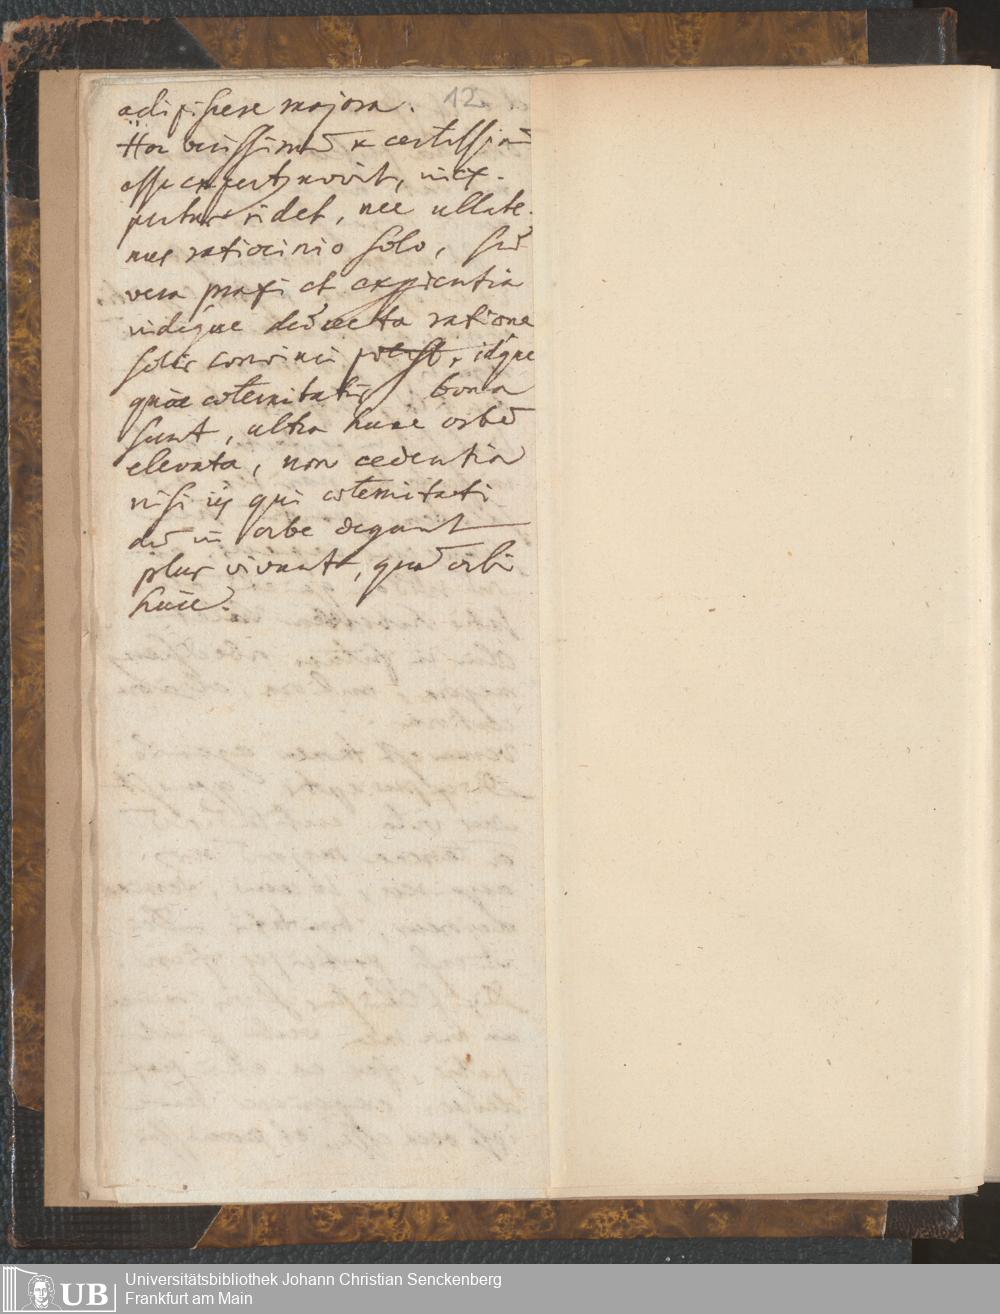 adipiscere majora. 12
Hoc verissimū & certissimū
esse expertus novit, inex-
pertus ridet, nec ullate-
nus ratiocinio solo, sed
vera praxi et experientia
indeque deducta ratione
solis convinci potest, idque
quae aeternitatis bona
sunt, ultra hunc orbē
elevata, non cedentia
nisi iis qui aeternitati
dū in orbe degunt
plus vivant, quā orbi
huic.
Universitätsbibliothek Johann Christian Senckenberg
Frankfurt am Main
UB